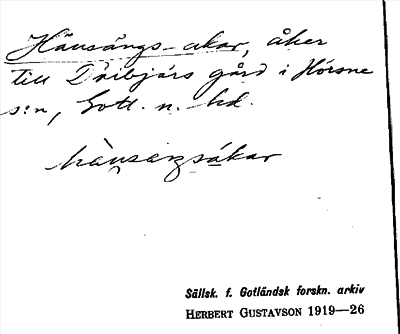 Hänsängs-akar, åker
till Dribjärs gård i Hörsne
s:n, Gotl. n. hd.
hànsaɲsákar
Sällsk. f. Gotländsk forskn. arkiv
HERBERT GUSTAVSON 1919—26